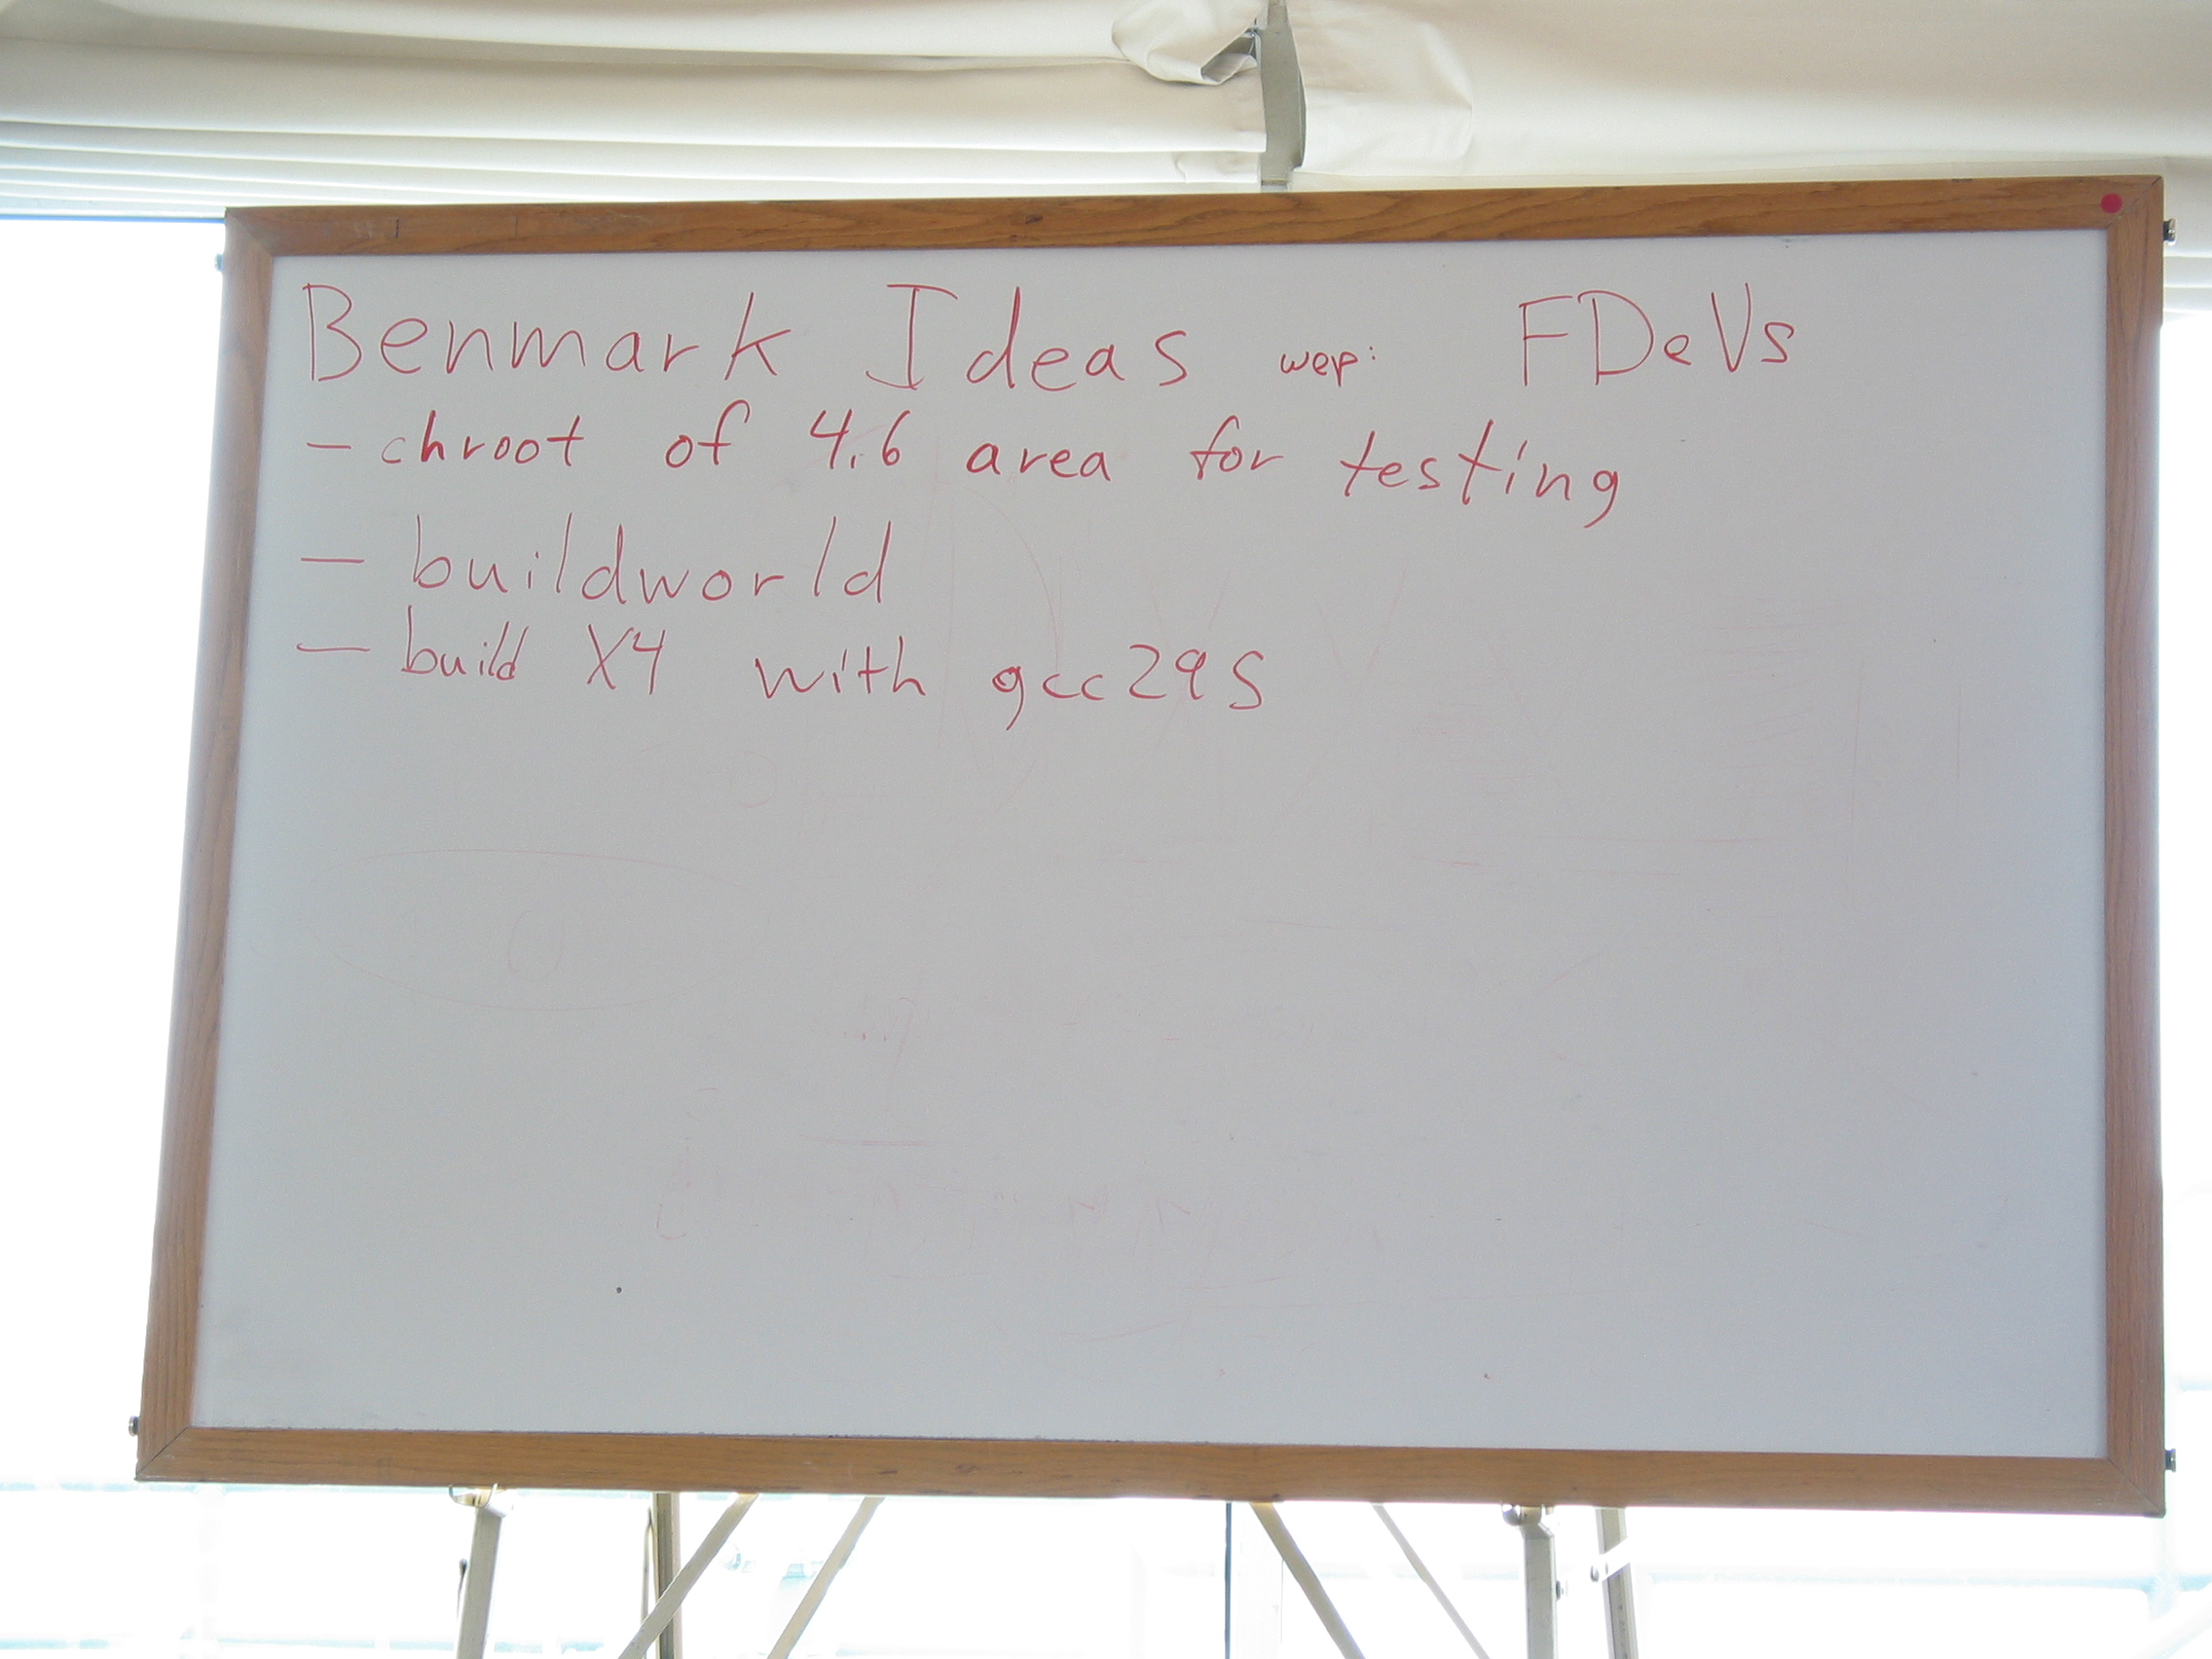 Benmark Ideas wep: FDeVs
- chroot of 4.6 area for testing
- buildworld
- build X4 with gcc295